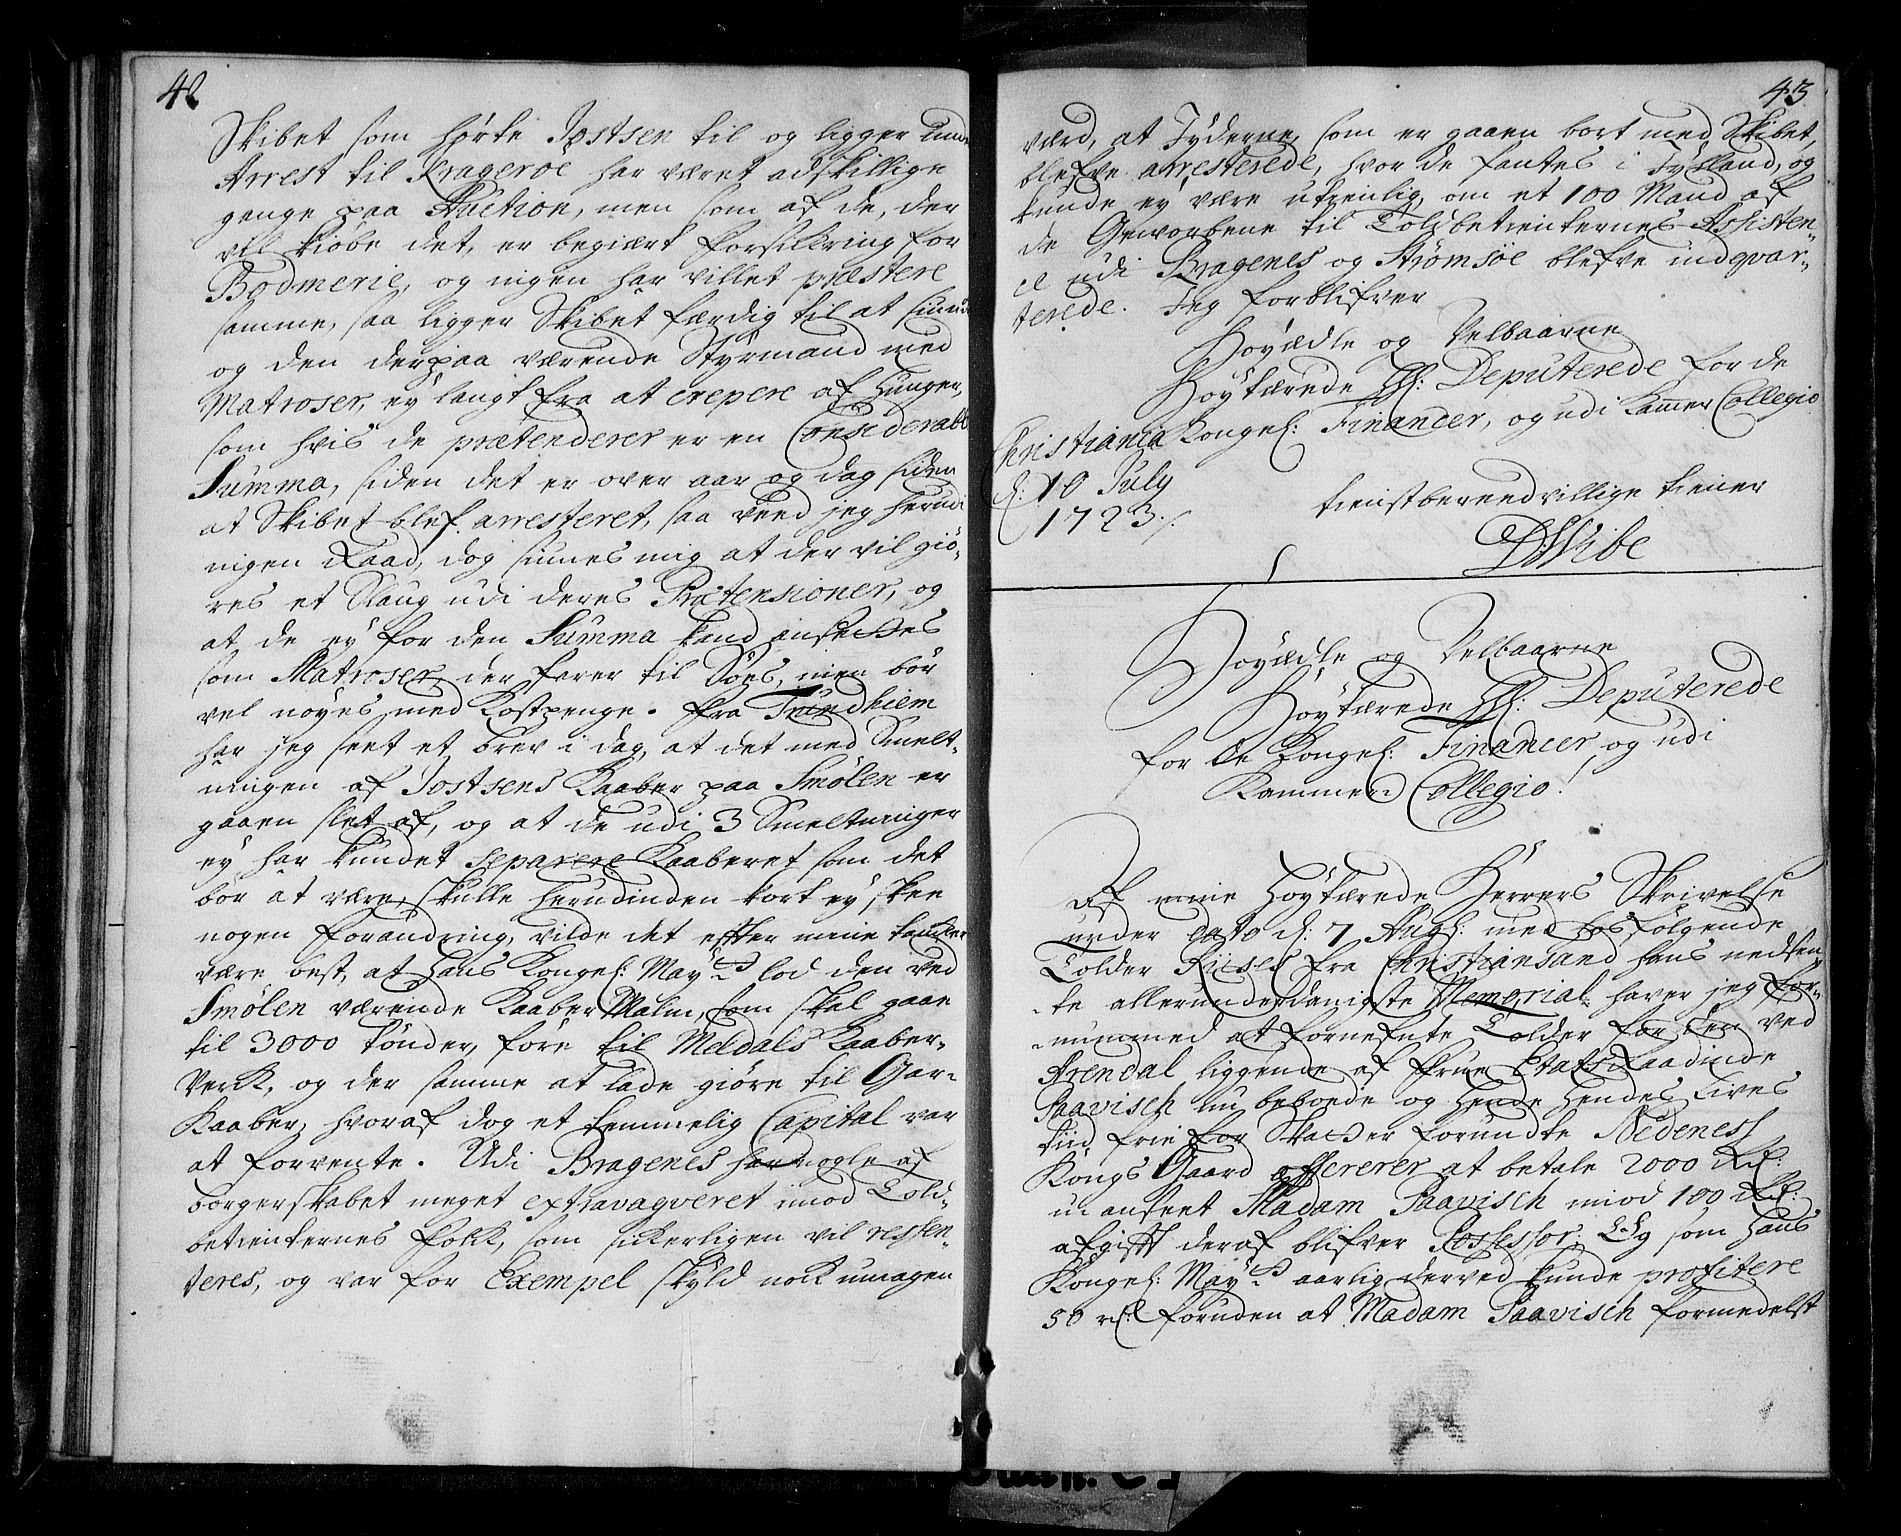 42
Skibet som hørte Jostsen til og ligger und
Arrest til Krageroe har været adskillige
genge paa Auction, men som af de, der
vil kiøbe det, er begiært forsikring for
Bodmerie, og ingen har villet præstere
samme, saa ligger Skibet færdig til at siun
og den derpaa værende Styrmand med
Matroser, ey langt fra at crepere af hunger,
som hvis de prætenderer er en Considerabl
Summa, siden det er over aar og dag siden
at Skibet blef arresteret, saa veed jeg herudi
ingen Raad, dog siunes mig at der vil giø-
res et Slaug udi deres Prætensioner, og
at de ey for den Summa kand ansettes
som Matroser, der farer til Søes, men bør
vel nøyes med Kostpenge. fra Trundhiem
har jeg seet et brev i dag, at det med Smelt-
ningen af Jostsens Kaaber paa Smølen er
gaaen slet af, og at de udi 3 Smeltninger
ey har kundet separere Kaaberet som det
bør at være, skulle herudinden kort ey skee
nogen forandring, vilde det efter mine tancker
være best, at Hans Kongel: Mayt lod den ved
Smølen værende Kaaber Malm, som skal gaae
til 3000 tønder, føre til Meldals Kaaber-
Verk, og der samme at lade giøre til Gar-
Kaaber, hvoraf dog et temmelig Capital var
at forvente. Udi Bragenes har nogle af
borgerskabet meget extravagveret imod Told-
betienternes folk, som sikerligen vil ressen-
teres, og var for Exempel skyld nok umagen
43
værd, at Jyderne, som er gaaen bort med Skibet,
blefve arresterede, hvor de fantes i Jylland, og
kunde ey være utienlig, om et 100 Mand af
de Geworbene til Toldbetienternes Assisten-
ce udi Bragenes og Strømsøe blefve indqvar-
terede. Jeg forblifver
Høyædle og Velbaarne
Høytærede HH: Deputerede for de
Kongel: Financer, og udi Kammer Collegio
Christiania
d: 10 July
1723./.
tienstbereedvillige tiener
DWibe
Høyædle og Velbaarne
Høytærede HH: Deputerede
for de Kongel: Financer, og udi
Kammer Collegio!
Af mine Høytærede Herrers Skrivelse
under dato d: 7 Aug: med hosfølgende
Tolder Riises fra Christiansand hans nedsen-
te allerunderdanigste Memorial haver jeg for-
nummed at fornefnte Tolder for den ved
Arendal liggende af Frue Etats Raadinde
Paavisch nu beboede og hende hendes Lives
tiid frie for Skatter forundte Nedeness
Kongs Gaard offererer at betale 2000 Rd:
uanseet Madam Paavisch imod 100 Rd:
afgift deraf blifver Possessor; Og som Hans
Kongel: Mayt aarlig derved kunde profitere
50 rd: foruden at Madam Paavisch formedelst